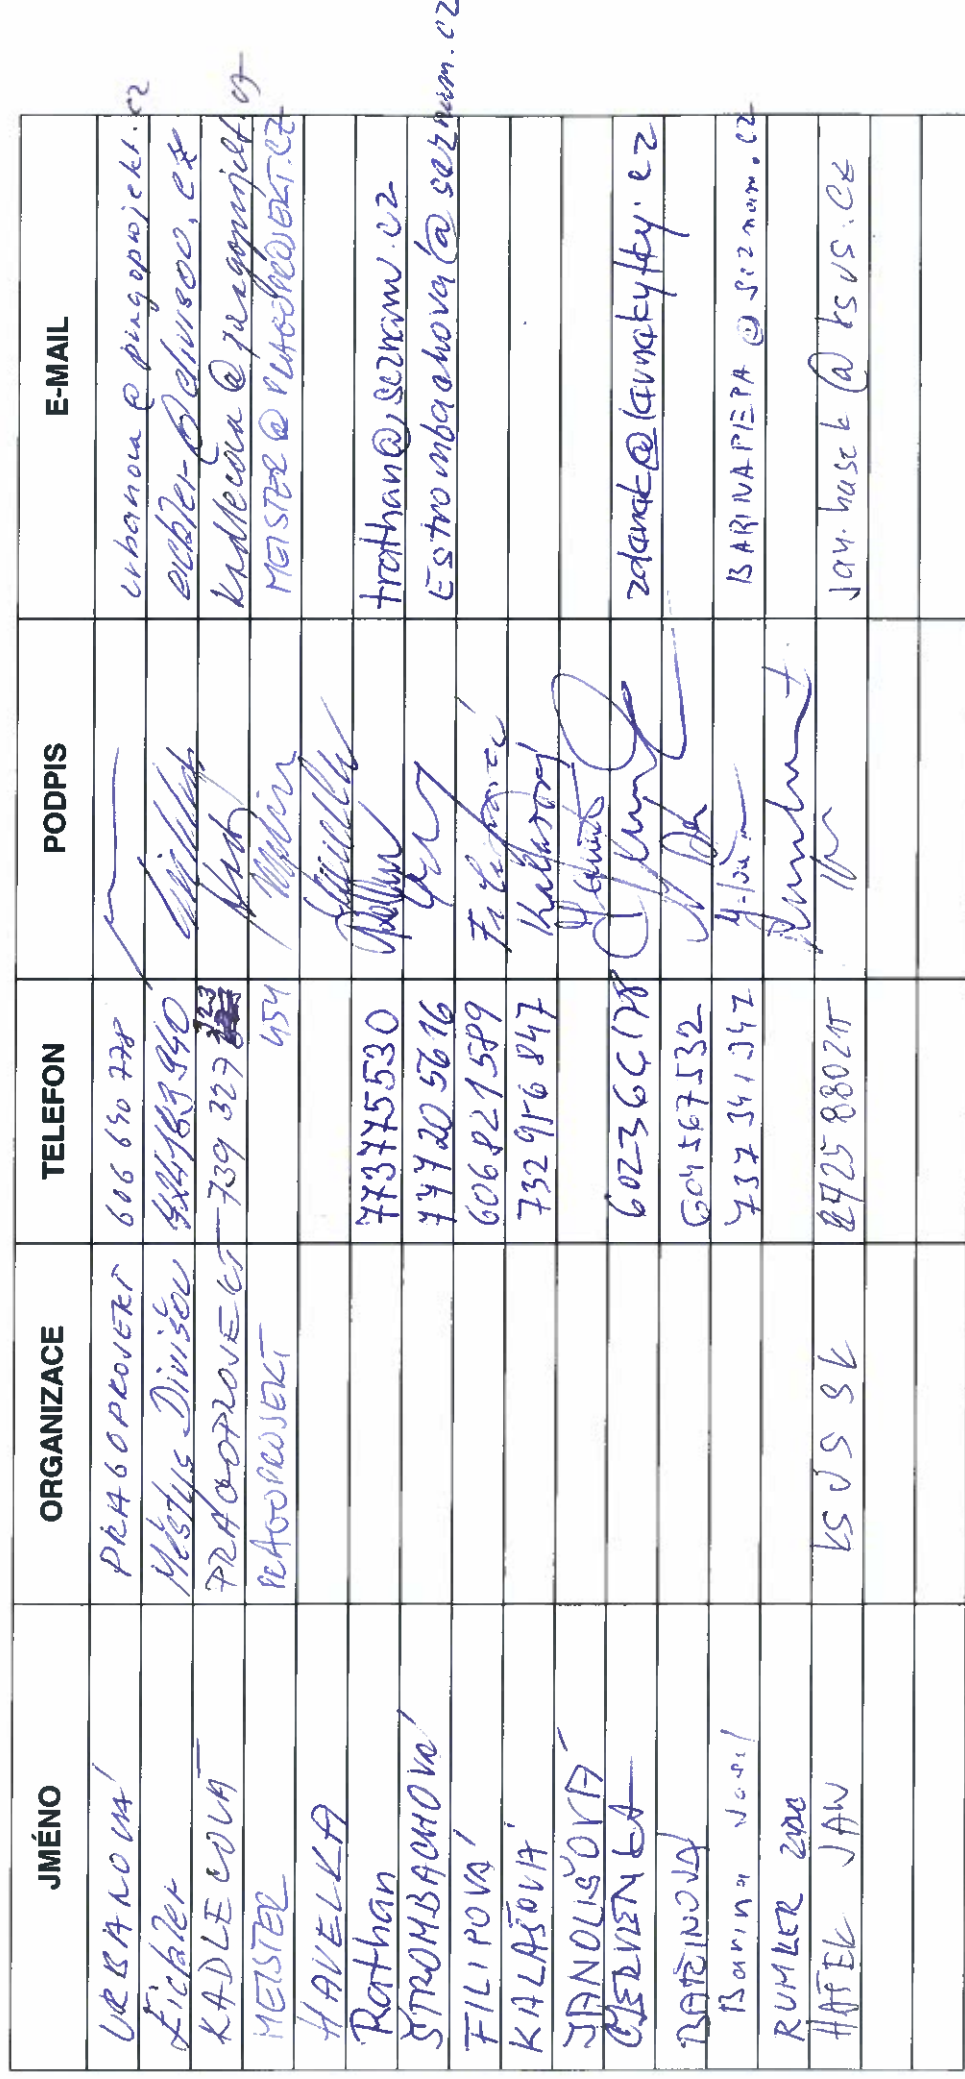 JMÉNO ORGANIZACE TELEFON PODPIS E-MAIL
URBANOVÁ PRAGOPROJEKT 606 640 778 urbanova@pragoprojekt.cz
Eichler Městys Divišov
KADLECOVÁ PRAGOPROJEKT 739 327 kadlecova@pragoprojekt.cz
MEISTER PRAGOPROJEKT 454 MEISTER@PRAGOPROJEKT.CZ
HAVELKA
Rathan 773775530 trathan@seznam.cz
ŠTROMBACHOVÁ 777205616 Estrombachova@seznam.cz
FILIPOVÁ 606821589 Filipová
KALAŠOVÁ 732956847 Kalašová
JANOLIŠOVÁ
ČERVENKA
604567532
Barina 737341347 BARINAPEPA@seznam.cz
RUMLER
HAŠEK JAN KSÚS SK jan.hasek@ksus.cz